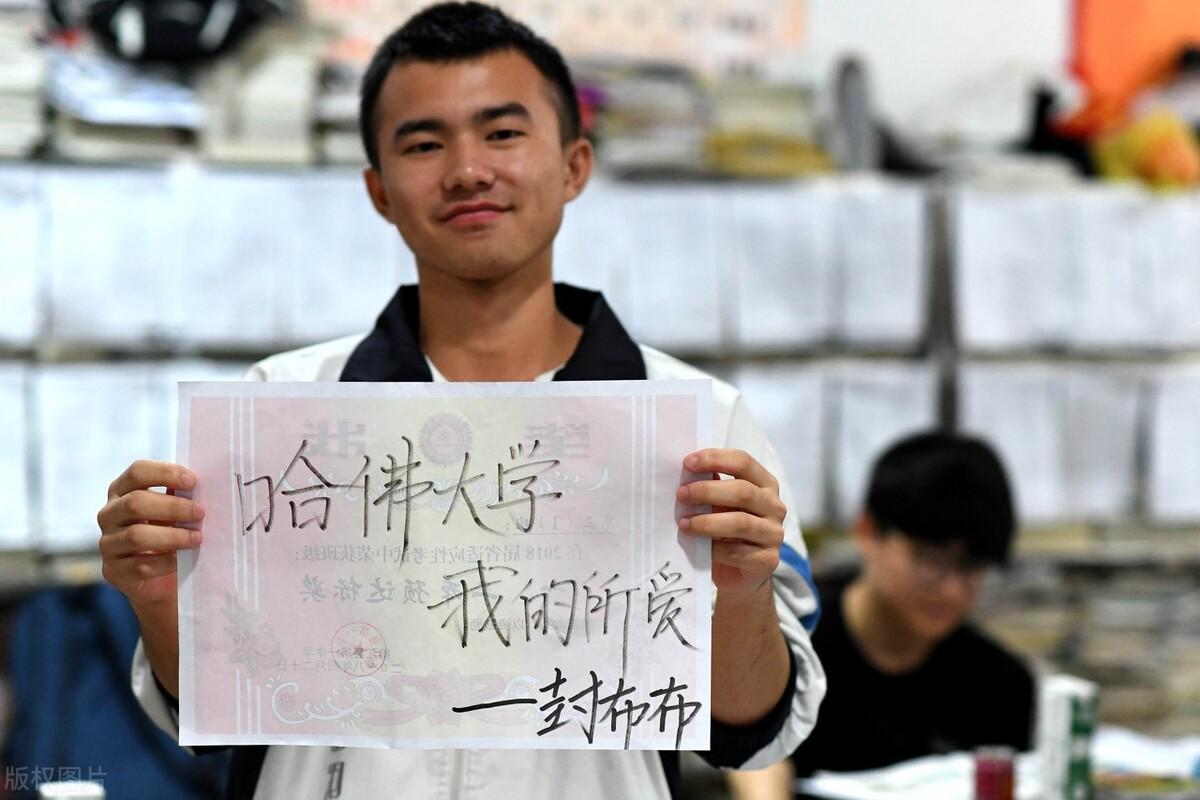 哈佛大学
我的所爱
—封布布
奖状
在2018届省适应性考试中荣获班级:
预达标奖
版权图片